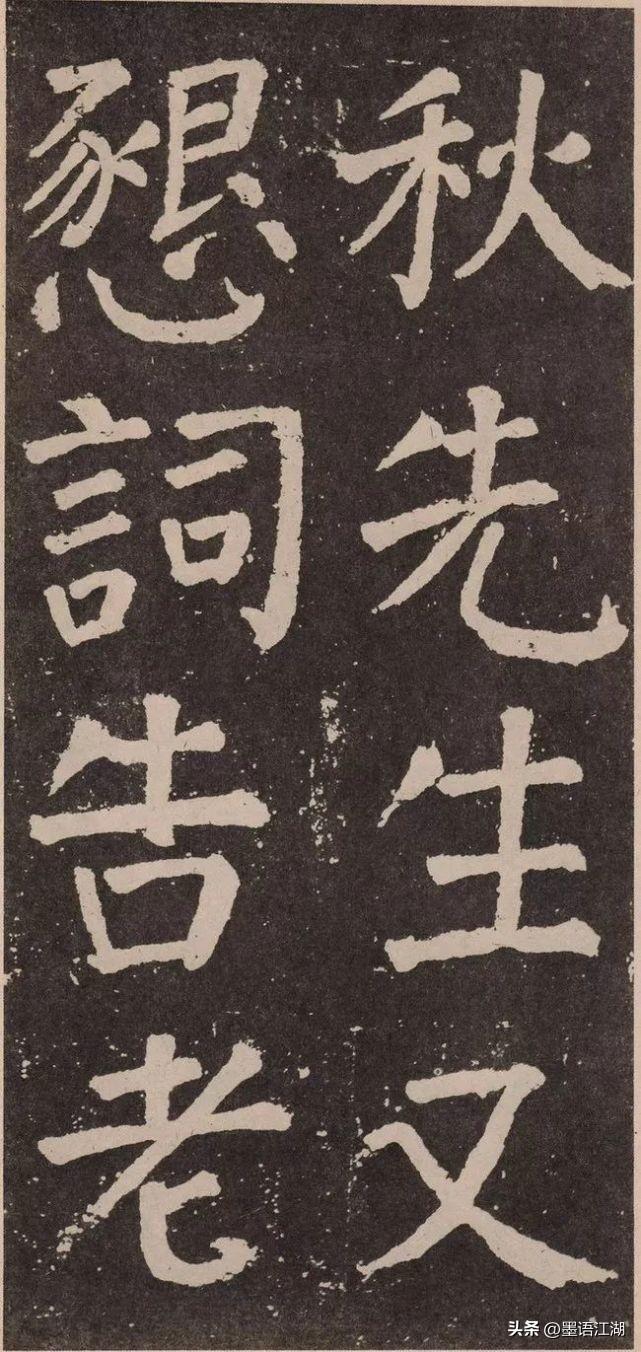 秋先生又
懇詞告老
头条 @墨语江湖